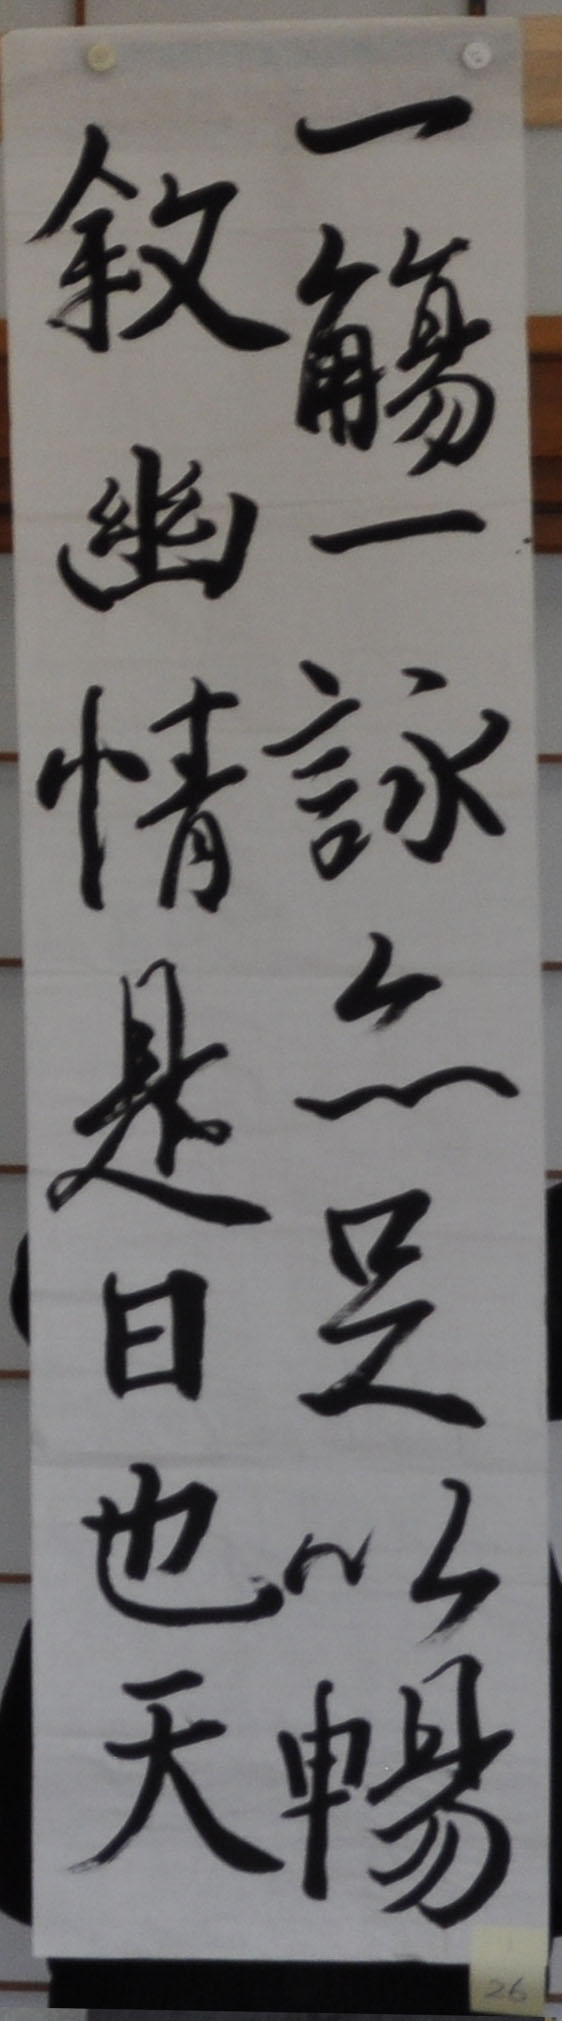 一觴一詠亦足以暢
敘幽情是日也天
26